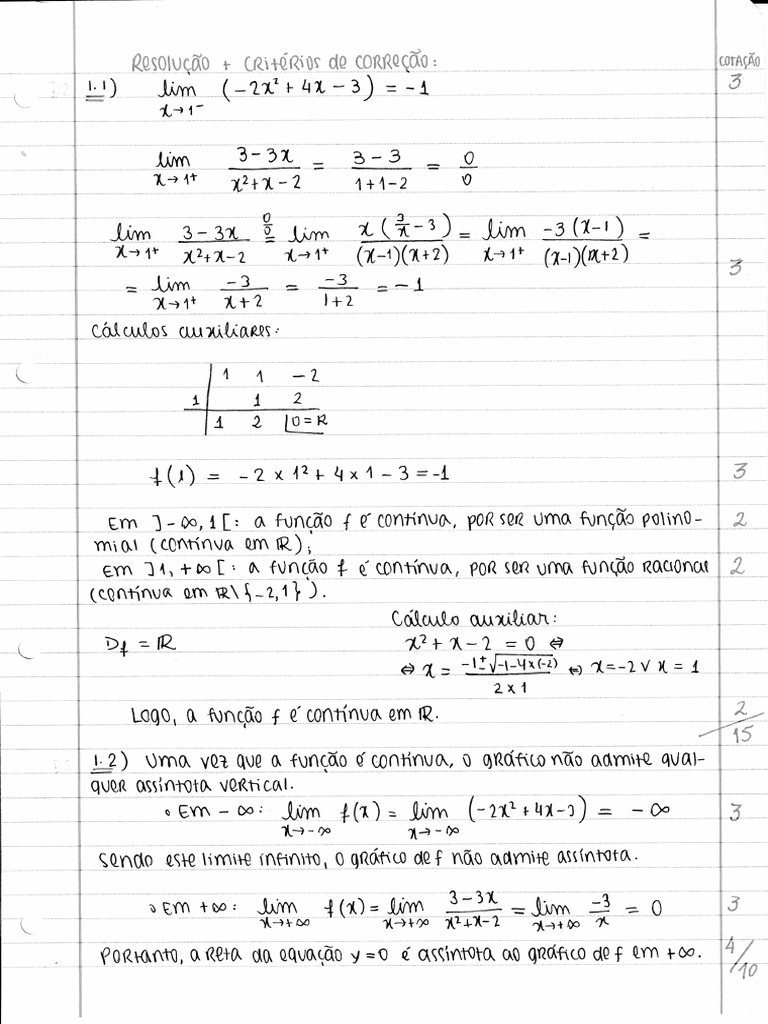 Resolução + critérios de correção: COTAÇÃO
1.1) lim x→1⁻ (-2x² + 4x - 3) = -1 3
lim x→1⁺ (3-3x)/(x²+x-2) = (3-3)/(1+1-2) = 0/0
lim x→1⁺ (3-3x)/(x²+x-2) =(0/0) lim x→1⁺ x(3/x - 3)/((x-1)(x+2)) = lim x→1⁺ -3(x-1)/((x-1)(x+2)) =
= lim x→1⁺ -3/(x+2) = -3/(1+2) = -1 3
Cálculos auxiliares:
1 1 -2
1 1 2
1 2 0=R
f(1) = -2 × 1² + 4 × 1 - 3 = -1 3
Em ]-∞, 1[: a função f é contínua, por ser uma função polino- 2
mial (contínua em ℝ);
Em ]1, +∞[: a função f é contínua, por ser uma função racional 2
(contínua em ℝ\{-2,1}).
Cálculo auxiliar:
Df = ℝ x² + x - 2 = 0 ⇔
⇔ x = (-1±√(-1-4×(-2)))/(2×1) ⇔ x=-2 ∨ x = 1
Logo, a função f é contínua em ℝ. 2
15
1.2) Uma vez que a função é contínua, o gráfico não admite qual-
quer assíntota vertical.
• Em -∞: lim x→-∞ f(x) = lim x→-∞ (-2x² + 4x - 3) = -∞ 3
Sendo este limite infinito, o gráfico de f não admite assíntota.
• Em +∞: lim x→+∞ f(x) = lim x→+∞ (3-3x)/(x²+x-2) = lim x→+∞ -3/x = 0 3
Portanto, a reta da equação y=0 é assintota ao gráfico de f em +∞. 4/10